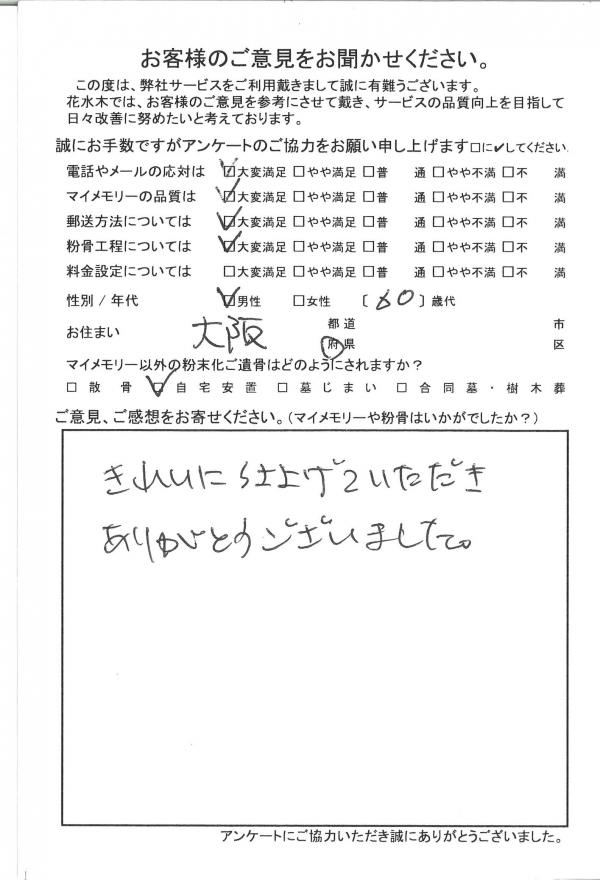 お客様のご意見をお聞かせください。
この度は、弊社サービスをご利用戴きまして誠に有難うございます。
花水木では、お客様のご意見を参考にさせて戴き、サービスの品質向上を目指して
日々改善に努めたいと考えております。
誠にお手数ですがアンケートのご協力をお願い申し上げます□に✔してください。
電話やメールの応対は ☑大変満足 □やや満足 □普 通 □やや不満 □不 満
マイメモリーの品質は ☑大変満足 □やや満足 □普 通 □やや不満 □不 満
郵送方法については ☑大変満足 □やや満足 □普 通 □やや不満 □不 満
粉骨工程については ☑大変満足 □やや満足 □普 通 □やや不満 □不 満
料金設定については □大変満足 □やや満足 □普 通 □やや不満 □不 満
性別 / 年代 ☑男性 □女性 〔 60 〕歳代
お住まい 大阪 都 道 府 県 市 区
マイメモリー以外の粉末化ご遺骨はどのようにされますか？
□ 散 骨 ☑ 自 宅 安 置 □ 墓 じ ま い □ 合 同 墓 ・ 樹 木 葬
ご意見、ご感想をお寄せください。(マイメモリーや粉骨はいかがでしたか？)
きれいに仕上げていただき
ありがとうございました。
アンケートにご協力いただき誠にありがとうございました。